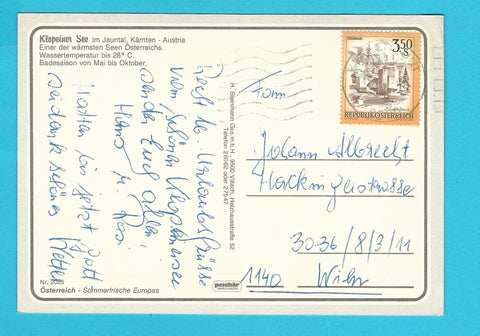 Klopeiner See im Jauntal, Kärnten - Austria
Einer der wärmsten Seen Österreichs.
Wassertemperatur bis 28° C.
Badesaison von Mai bis Oktober.
Recht lb. Urlaubsgrüße
vom schönen Klopeinersee
sendet Euch allen
Hans u. Rosi
Hatten bis jetzt Gott
sei dank schönes Wetter
H. Steinmann Ges.m.b.H., 9500 Villach, Heizhausstraße 52
Fam
Johann Albrecht
30-36/8/3/11
1140 Wien
3.50
S
REPUBLIK ÖSTERREICH
peschår
Nr. 2026
Österreich - Sommerfrische Europas